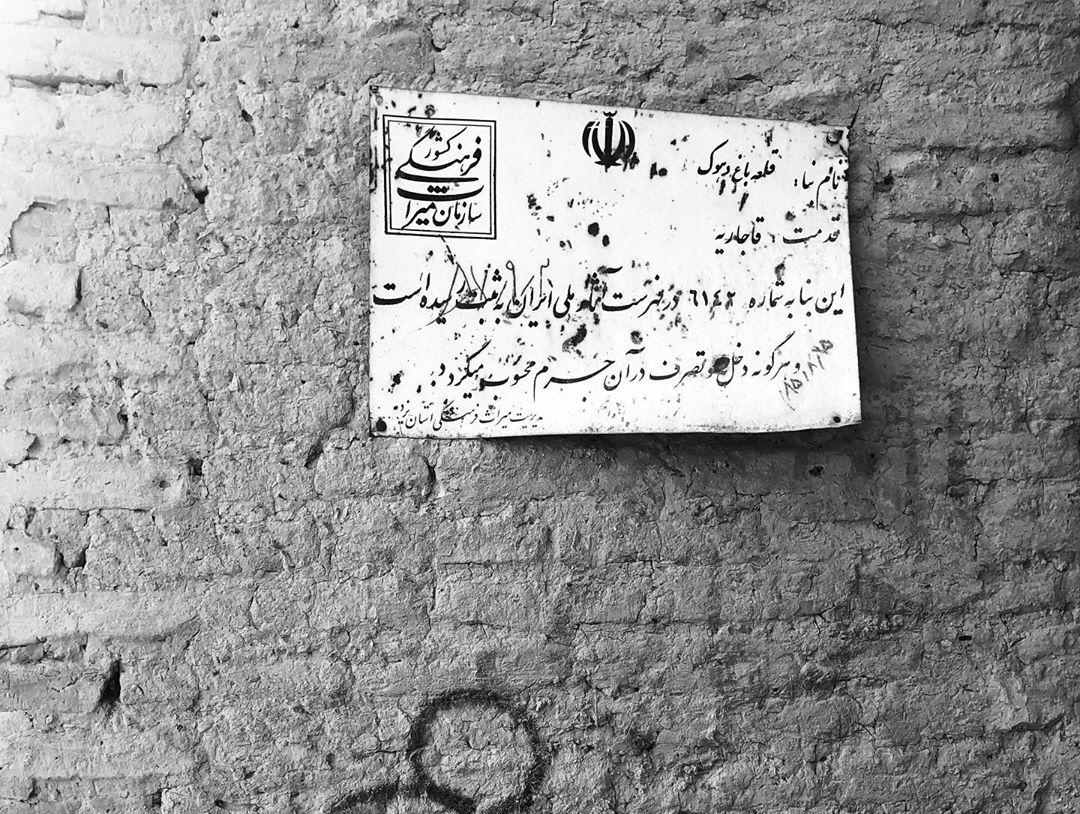 سازمان میراث
فرهنگی کشور
نام بنا: قلعه باغ دهوک
قدمت: قاجاریه
این بنا به شماره ٦١٤٢ در فهرست آثار ملی ایران به ثبت رسیده است
و هرگونه دخل و تصرف در آن جرم محسوب میگردد.
مدیریت میراث فرهنگی استان یزد